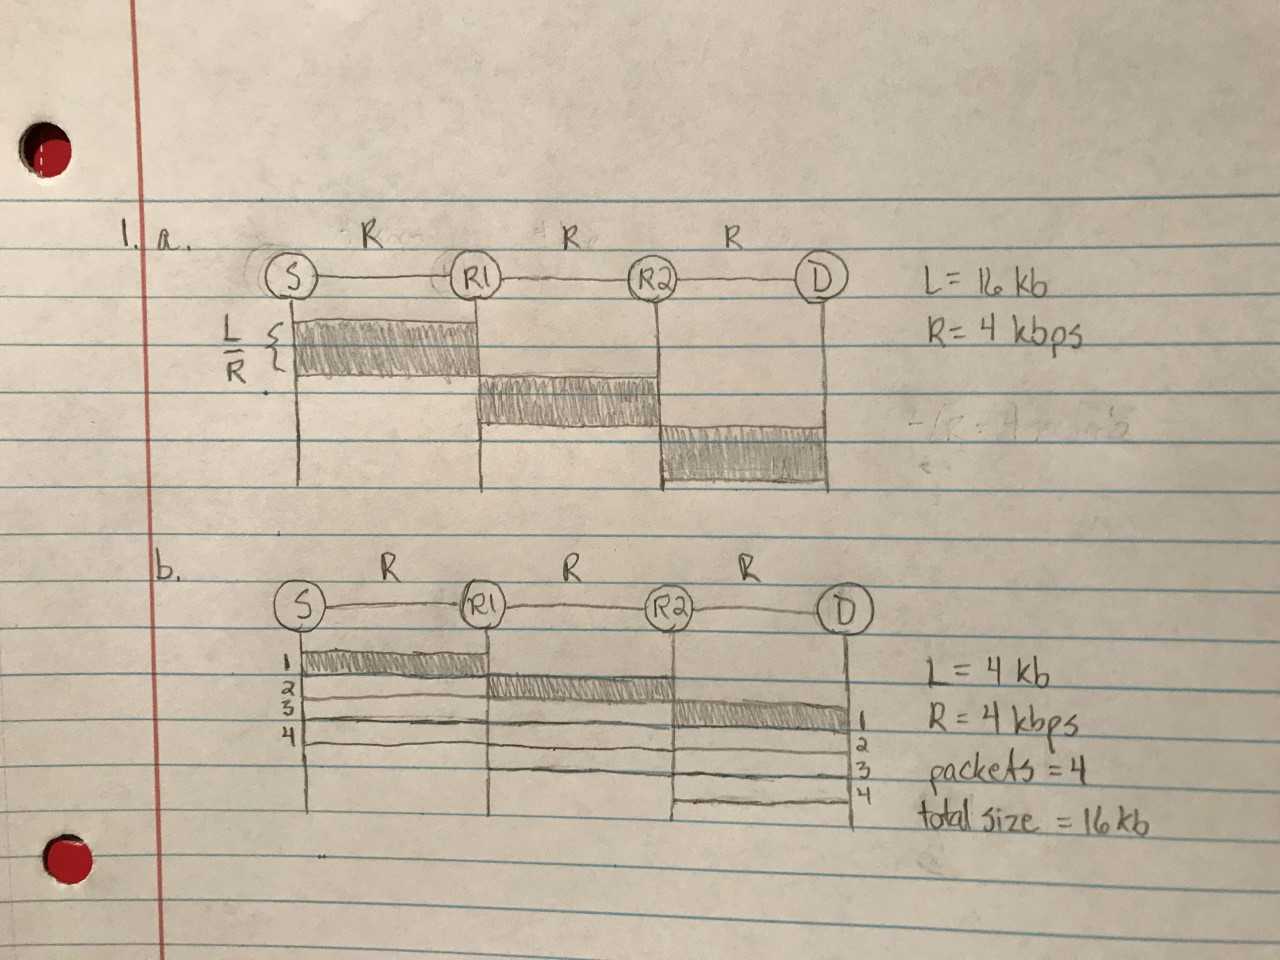 1. a.
R R R
S R1 R2 D
L = 16 kb
L
R
R = 4 kbps
b.
R R R
S R1 R2 D
1
2
3
4
1
2
3
4
L = 4 kb
R = 4 kbps
packets = 4
total size = 16 kb